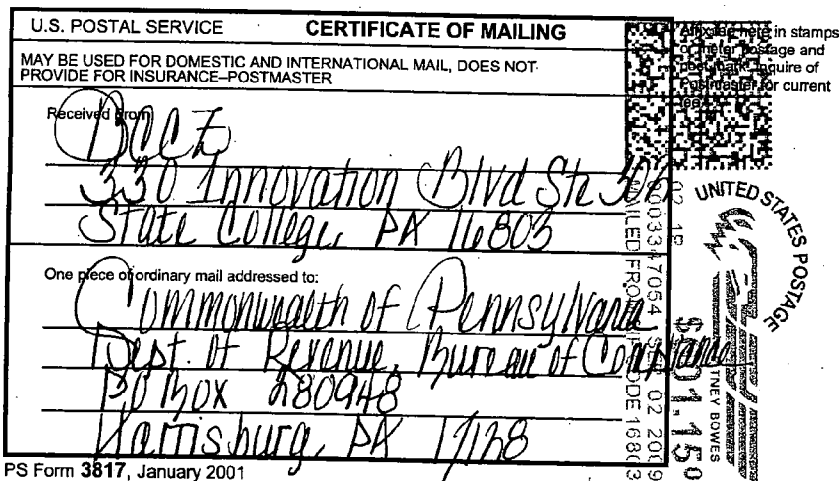 U.S. POSTAL SERVICE CERTIFICATE OF MAILING
MAY BE USED FOR DOMESTIC AND INTERNATIONAL MAIL, DOES NOT
PROVIDE FOR INSURANCE–POSTMASTER
Received From:
330 Innovation Blvd Ste
State College, PA 16803
One piece of ordinary mail addressed to:
Commonwealth of Pennsylvania
Dept. of Revenue, Bureau of Compliance
PO Box 280948
Harrisburg, PA 17128
PS Form 3817, January 2001
here in stamps
or meter postage and
inquire of
Postmaster for current
UNITED STATES POSTAGE
PITNEY BOWES
02 1P
$ 01.15⁰
MAILED FROM ZIPCODE 16803